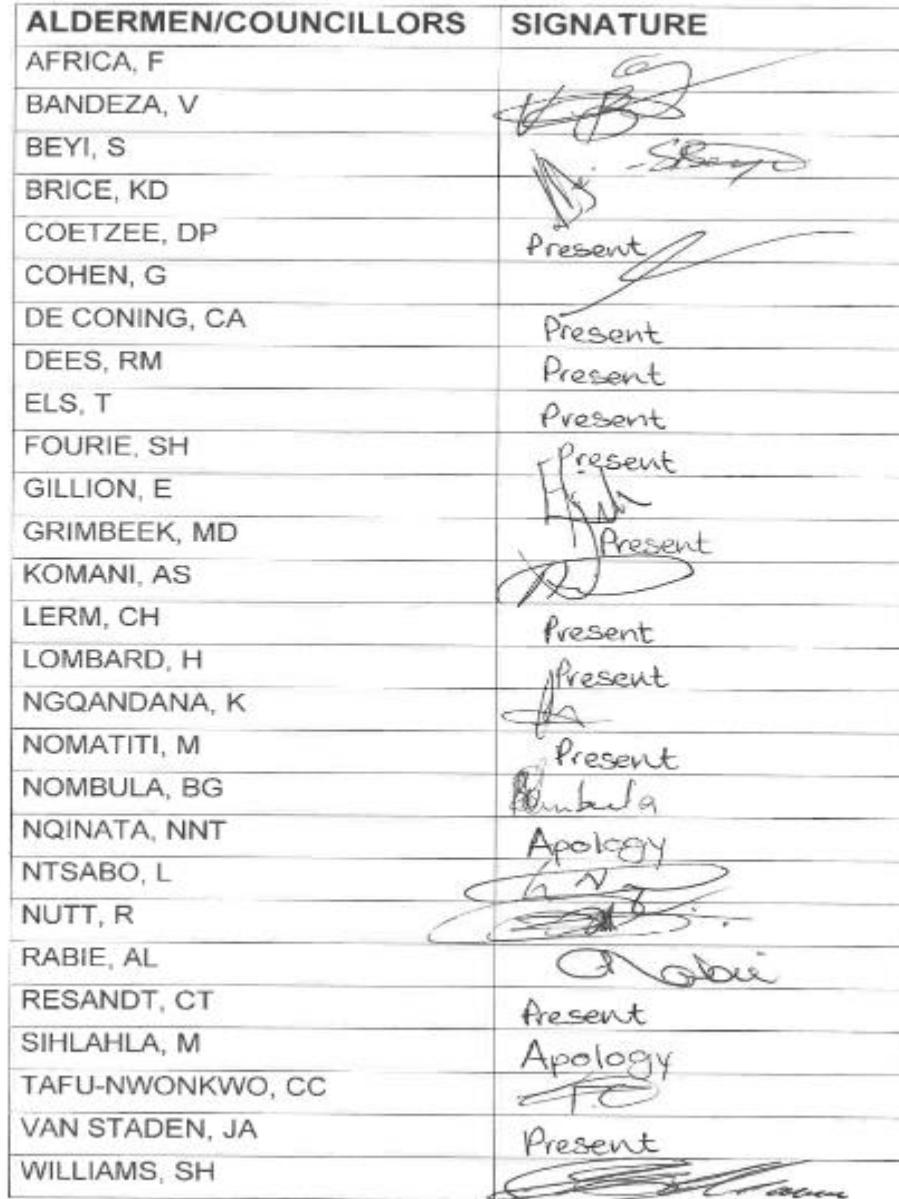 ALDERMEN/COUNCILLORS SIGNATURE
AFRICA, F
BANDEZA, V
BEYI, S
BRICE, KD
COETZEE, DP Present
COHEN, G
DE CONING, CA Present
DEES, RM Present
ELS, T Present
FOURIE, SH Present
GILLION, E
GRIMBEEK, MD Present
KOMANI, AS
LERM, CH Present
LOMBARD, H Present
NGQANDANA, K
NOMATITI, M Present
NOMBULA, BG
NQINATA, NNT Apology
NTSABO, L
NUTT, R
RABIE, AL Rabie
RESANDT, CT Present
SIHLAHLA, M Apology
TAFU-NWONKWO, CC T.C
VAN STADEN, JA Present
WILLIAMS, SH